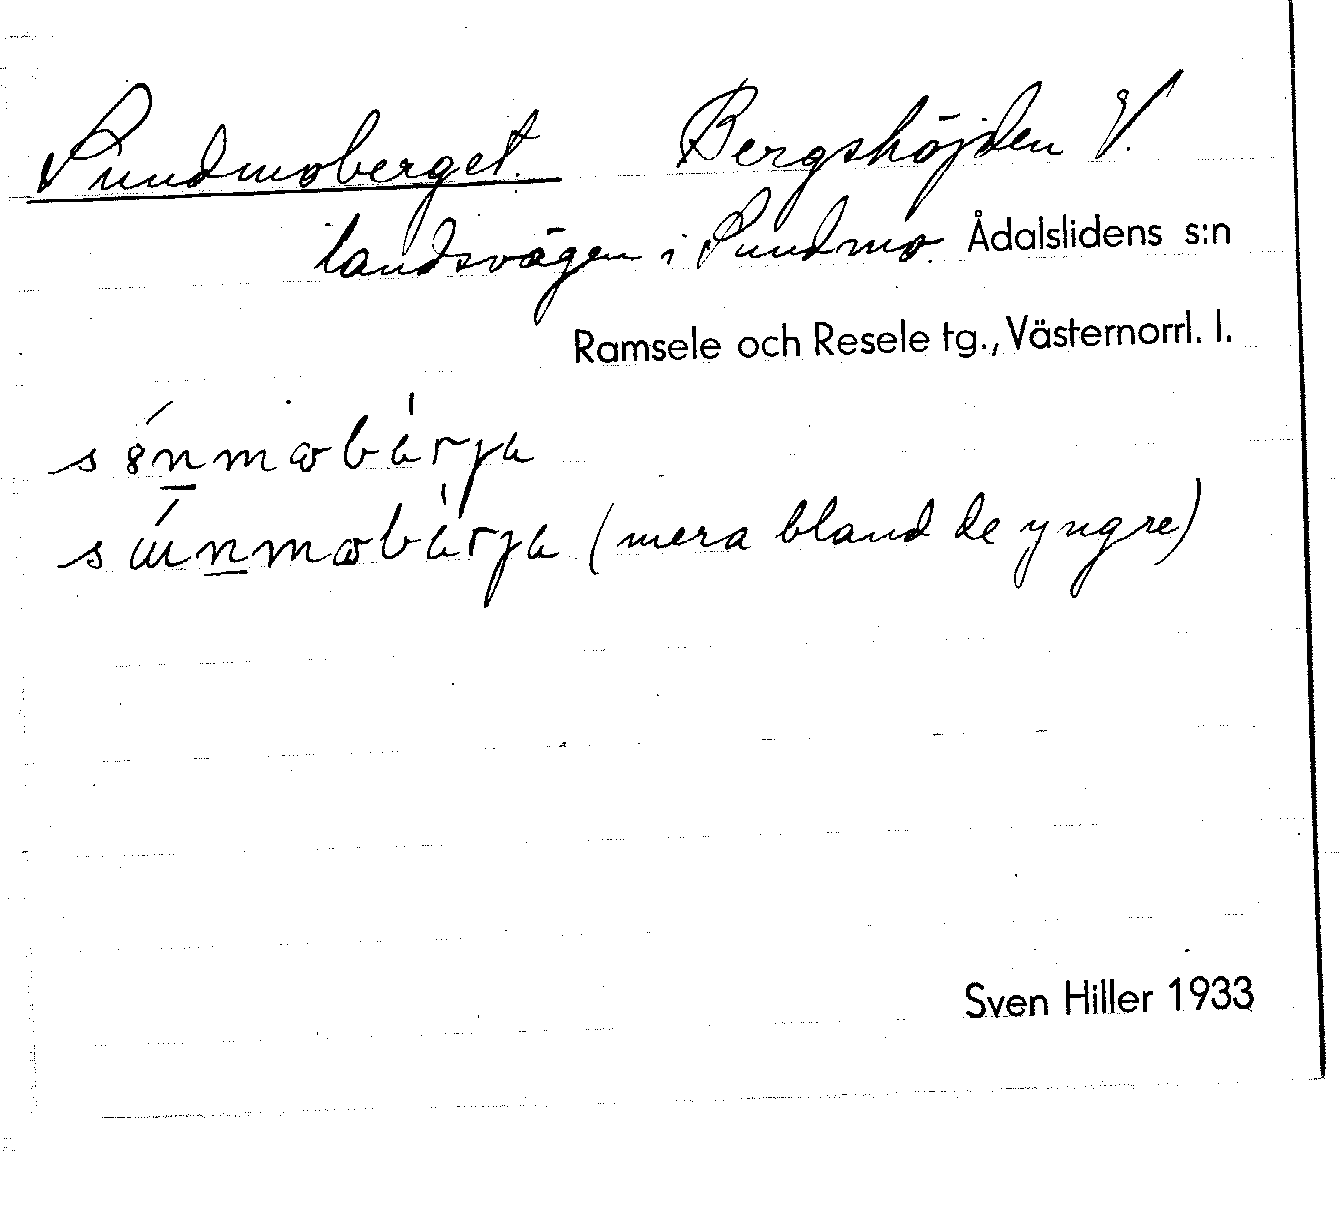 Sundmoberget. Bergshöjden V.
landsvägen i Sundmo. Ådalslidens s:n
Ramsele och Resele tg., Västernorrl. l.
(mera bland de yngre)
Sven Hiller 1933